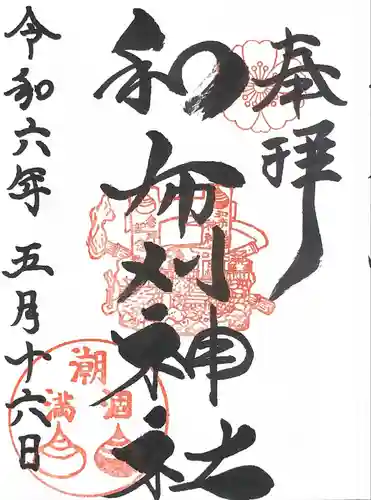 奉拝
和布刈神社
令和六年 五月十六日
潮 満 涸